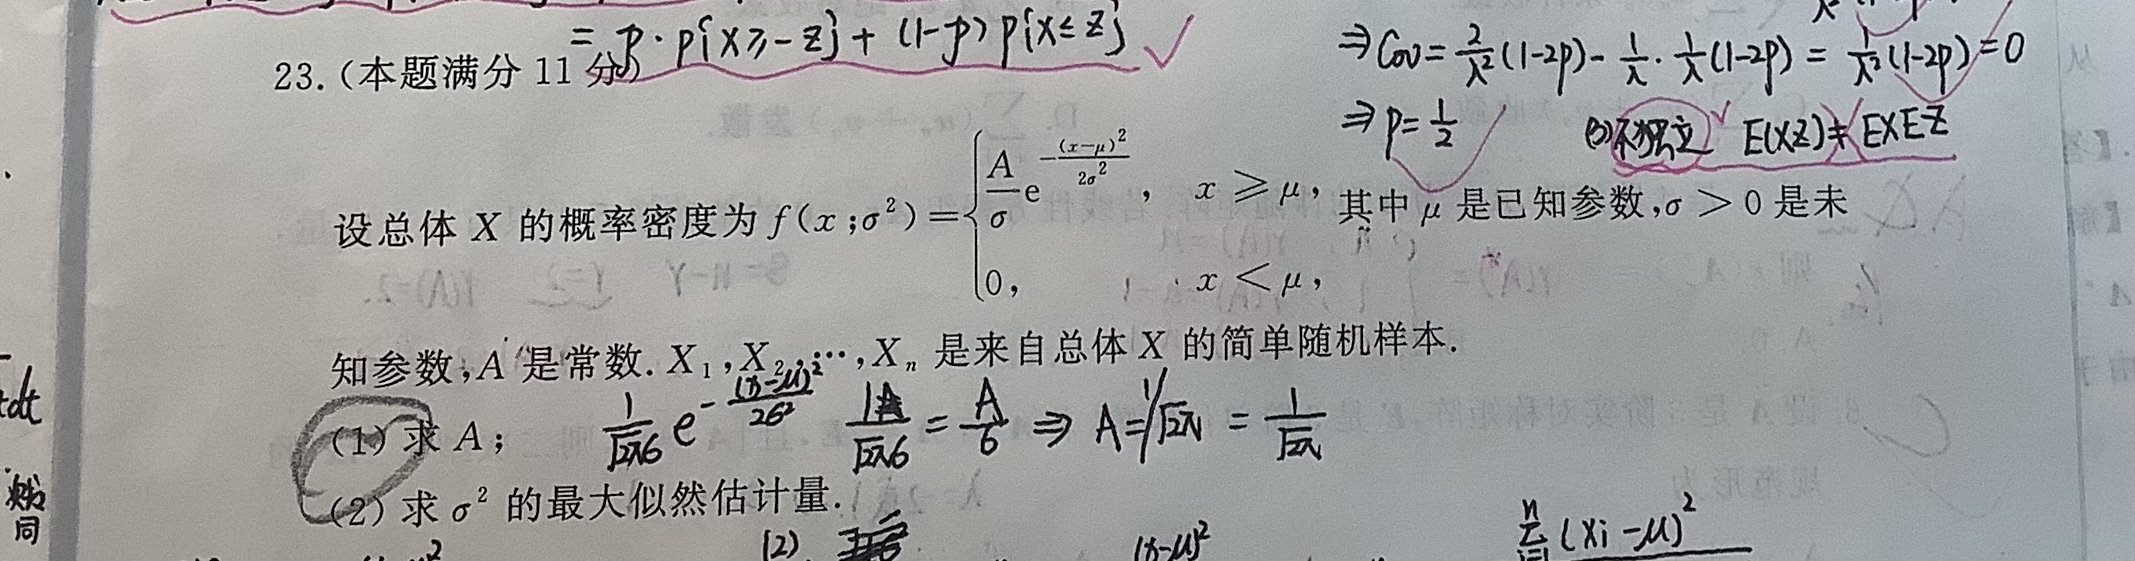 = p·P{X≥-z} + (1-p)P{X≤z}
⇒Cov= 2/λ²(1-2p) - 1/λ·1/λ(1-2p) = 1/λ²(1-2p)=0
23.(本题满分 11 分)
⇒p= 1/2 (3)不独立 E(XZ)≠EXEZ
设总体 X 的概率密度为 f(x;σ²)= { A/σ e^{-(x-μ)²/2σ²}, x ≥ μ, 其中 μ 是已知参数,σ > 0 是未
0, x < μ,
知参数,A 是常数. X₁,X₂,…,Xₙ 是来自总体 X 的简单随机样本.
(1) 求 A; 1/√2πσ e^{-(x-μ)²/2σ²} 1/√2πσ = A/σ ⇒ A=1/√2π = 1/√2π
(2) 求 σ² 的最大似然估计量.
(2) (x-μ)² Σ(Xi-μ)²